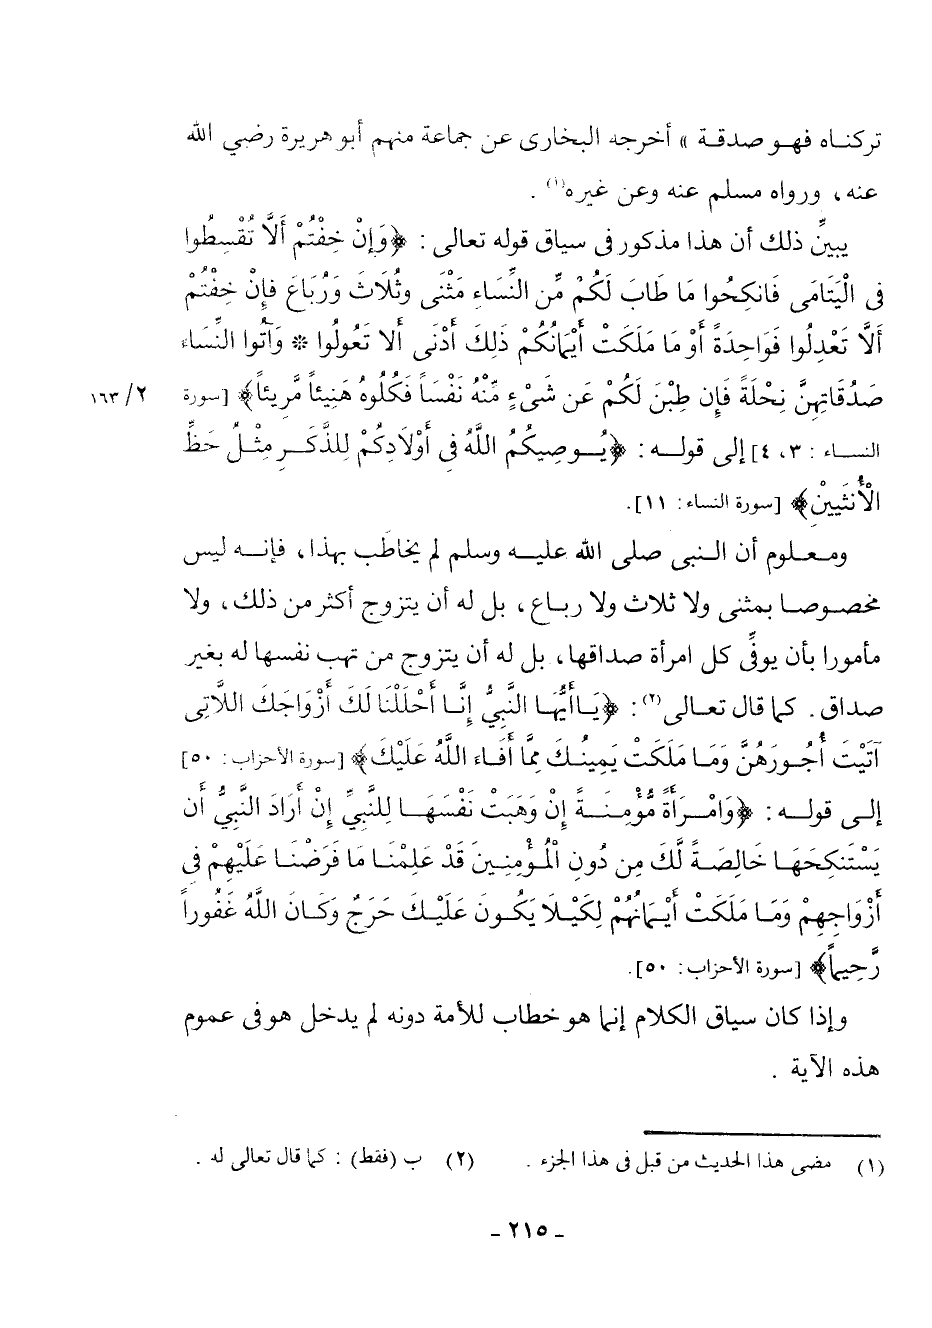 تركناه فهو صدقة » أخرجه البخارى عن جماعة منهم أبو هريرة رضي الله
عنه ، ورواه مسلم عنه وعن غيره(١) .
يبينِّ ذلك أن هذا مذكور فى سياق قوله تعالى : ﴿وَإِنْ خِفْتُمْ أَلَّا تُقْسِطُوا
فِى الْيَتَامَى فَانكِحُوا مَا طَابَ لَكُم مِّن النِّسَاءِ مَثْنَى وثُلَاثَ وَرُبَاعَ فَإِنْ خِفْتُمْ
أَلَّا تَعْدِلُوا فَوَاحِدَةً أَوْ مَا مَلَكَتْ أَيْمَانُكُمْ ذَلِكَ أَدْنَى أَلا تَعُولُوا * وَآتُوا النِّسَاءَ
صَدُقَاتِهِنَّ نِحْلَةً فَإِن طِبْنَ لَكُمْ عَن شَىْءٍ مِّنْهُ نَفْسَاً فَكُلُوهُ هَنِيئاً مَّرِيئاً﴾ [سورة
٢/ ١٦٣
النساء : ٣، ٤] إلى قوله : ﴿يُوصِيكُمُ اللَّهُ فِى أَوْلَادِكُمْ لِلذَّكَرِ مِثْلُ حَظِّ
الْأُنثَيَيْنِ﴾ [سورة النساء : ١١].
ومعلوم أن النبى صلى الله عليه وسلم لم يخاطَب بهذا ، فإنه ليس
مخصوصا بمثنى ولا ثلاث ولا رباع ، بل له أن يتزوج أكثر من ذلك ، ولا
مأمورا بأن يوفِّى كل امرأة صداقها ، بل له أن يتزوج من تهب نفسها له بغير
صداق . كما قال تعالى(٢) : ﴿يَاأَيُّهَا النَّبِيُّ إِنَّا أَحْلَلْنَا لَكَ أَزْوَاجَكَ اللَّاتِى
آتَيْتَ أُجُورَهُنَّ وَمَا مَلَكَتْ يَمِينُكَ مِمَّا أَفَاءَ اللَّهُ عَلَيْكَ﴾ [سورة الأحزاب : ٥٠]
إلى قوله : ﴿وَامْرَأَةً مُّؤْمِنَةً إِن وَهَبَتْ نَفْسَهَا لِلنَّبِيِّ إِنْ أَرَادَ النَّبِيُّ أَن
يَسْتَنكِحَهَا خَالِصَةً لَّكَ مِن دُونِ الْمُؤْمِنِينَ قَدْ عَلِمْنَا مَا فَرَضْنَا عَلَيْهِمْ فِى
أَزْوَاجِهِمْ وَمَا مَلَكَتْ أَيْمَانُهُمْ لِكَيْلَا يَكُونَ عَلَيْكَ حَرَجٌ وَكَانَ اللَّهُ غَفُوراً
رَّحِيماً﴾ [سورة الأحزاب : ٥٠].
وإذا كان سياق الكلام إنما هو خطاب للأمة دونه لم يدخل هو فى عموم
هذه الآية .
(١) مضى هذا الحديث من قبل فى هذا الجزء . (٢) ب (فقط) : كما قال تعالى له .
ـ ٢١٥ ـ